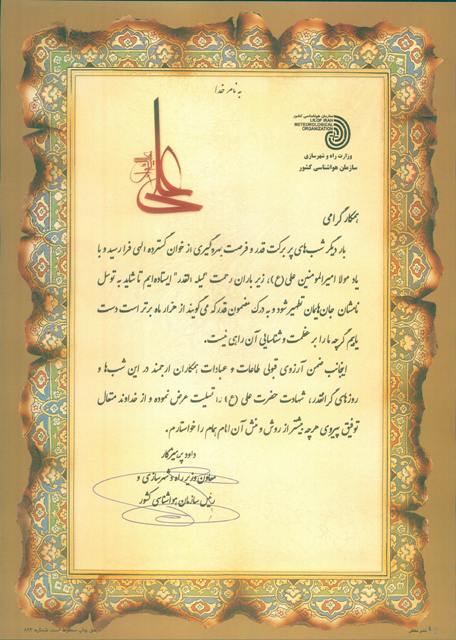 به نام خدا
سازمان هواشناسی کشور
I.R.OF IRAN
METEOROLOGICAL
ORGANIZATION
وزارت راه و شهرسازی
سازمان هواشناسی کشور
علی
همکار گرامی
بار دیگر شب‌های پر برکت قدر و فرصت بهره گیری از خوان گسترده الهی فرا رسید و با
یاد مولا امیرالمومنین علی (ع)، زیر باران رحمت "لیله القدر" ایستاده‌ایم تا شاید به توسل
نامشان جان‌هامان تطهیر شود و به درک مضمون قدر که می‌گویند از هزار ماه برتر است دست
یابیم گرچه ما را بر عظمت و شناسایی آن راهی نیست.
اینجانب ضمن آرزوی قبولی طاعات و عبادات همکاران ارجمند در این شب‌ها و
روزهای گرانقدر، شهادت حضرت علی (ع) را تسلیت عرض نموده و از خداوند متعال
توفیق پیروی هرچه بیشتر از روش و منش آن امام همام را خواستارم.
داود پرهیزگار
معاون وزیر راه و شهرسازی و
رئیس سازمان هواشناسی کشور
حق چاپ محفوظ است. شماره ۸۶۳